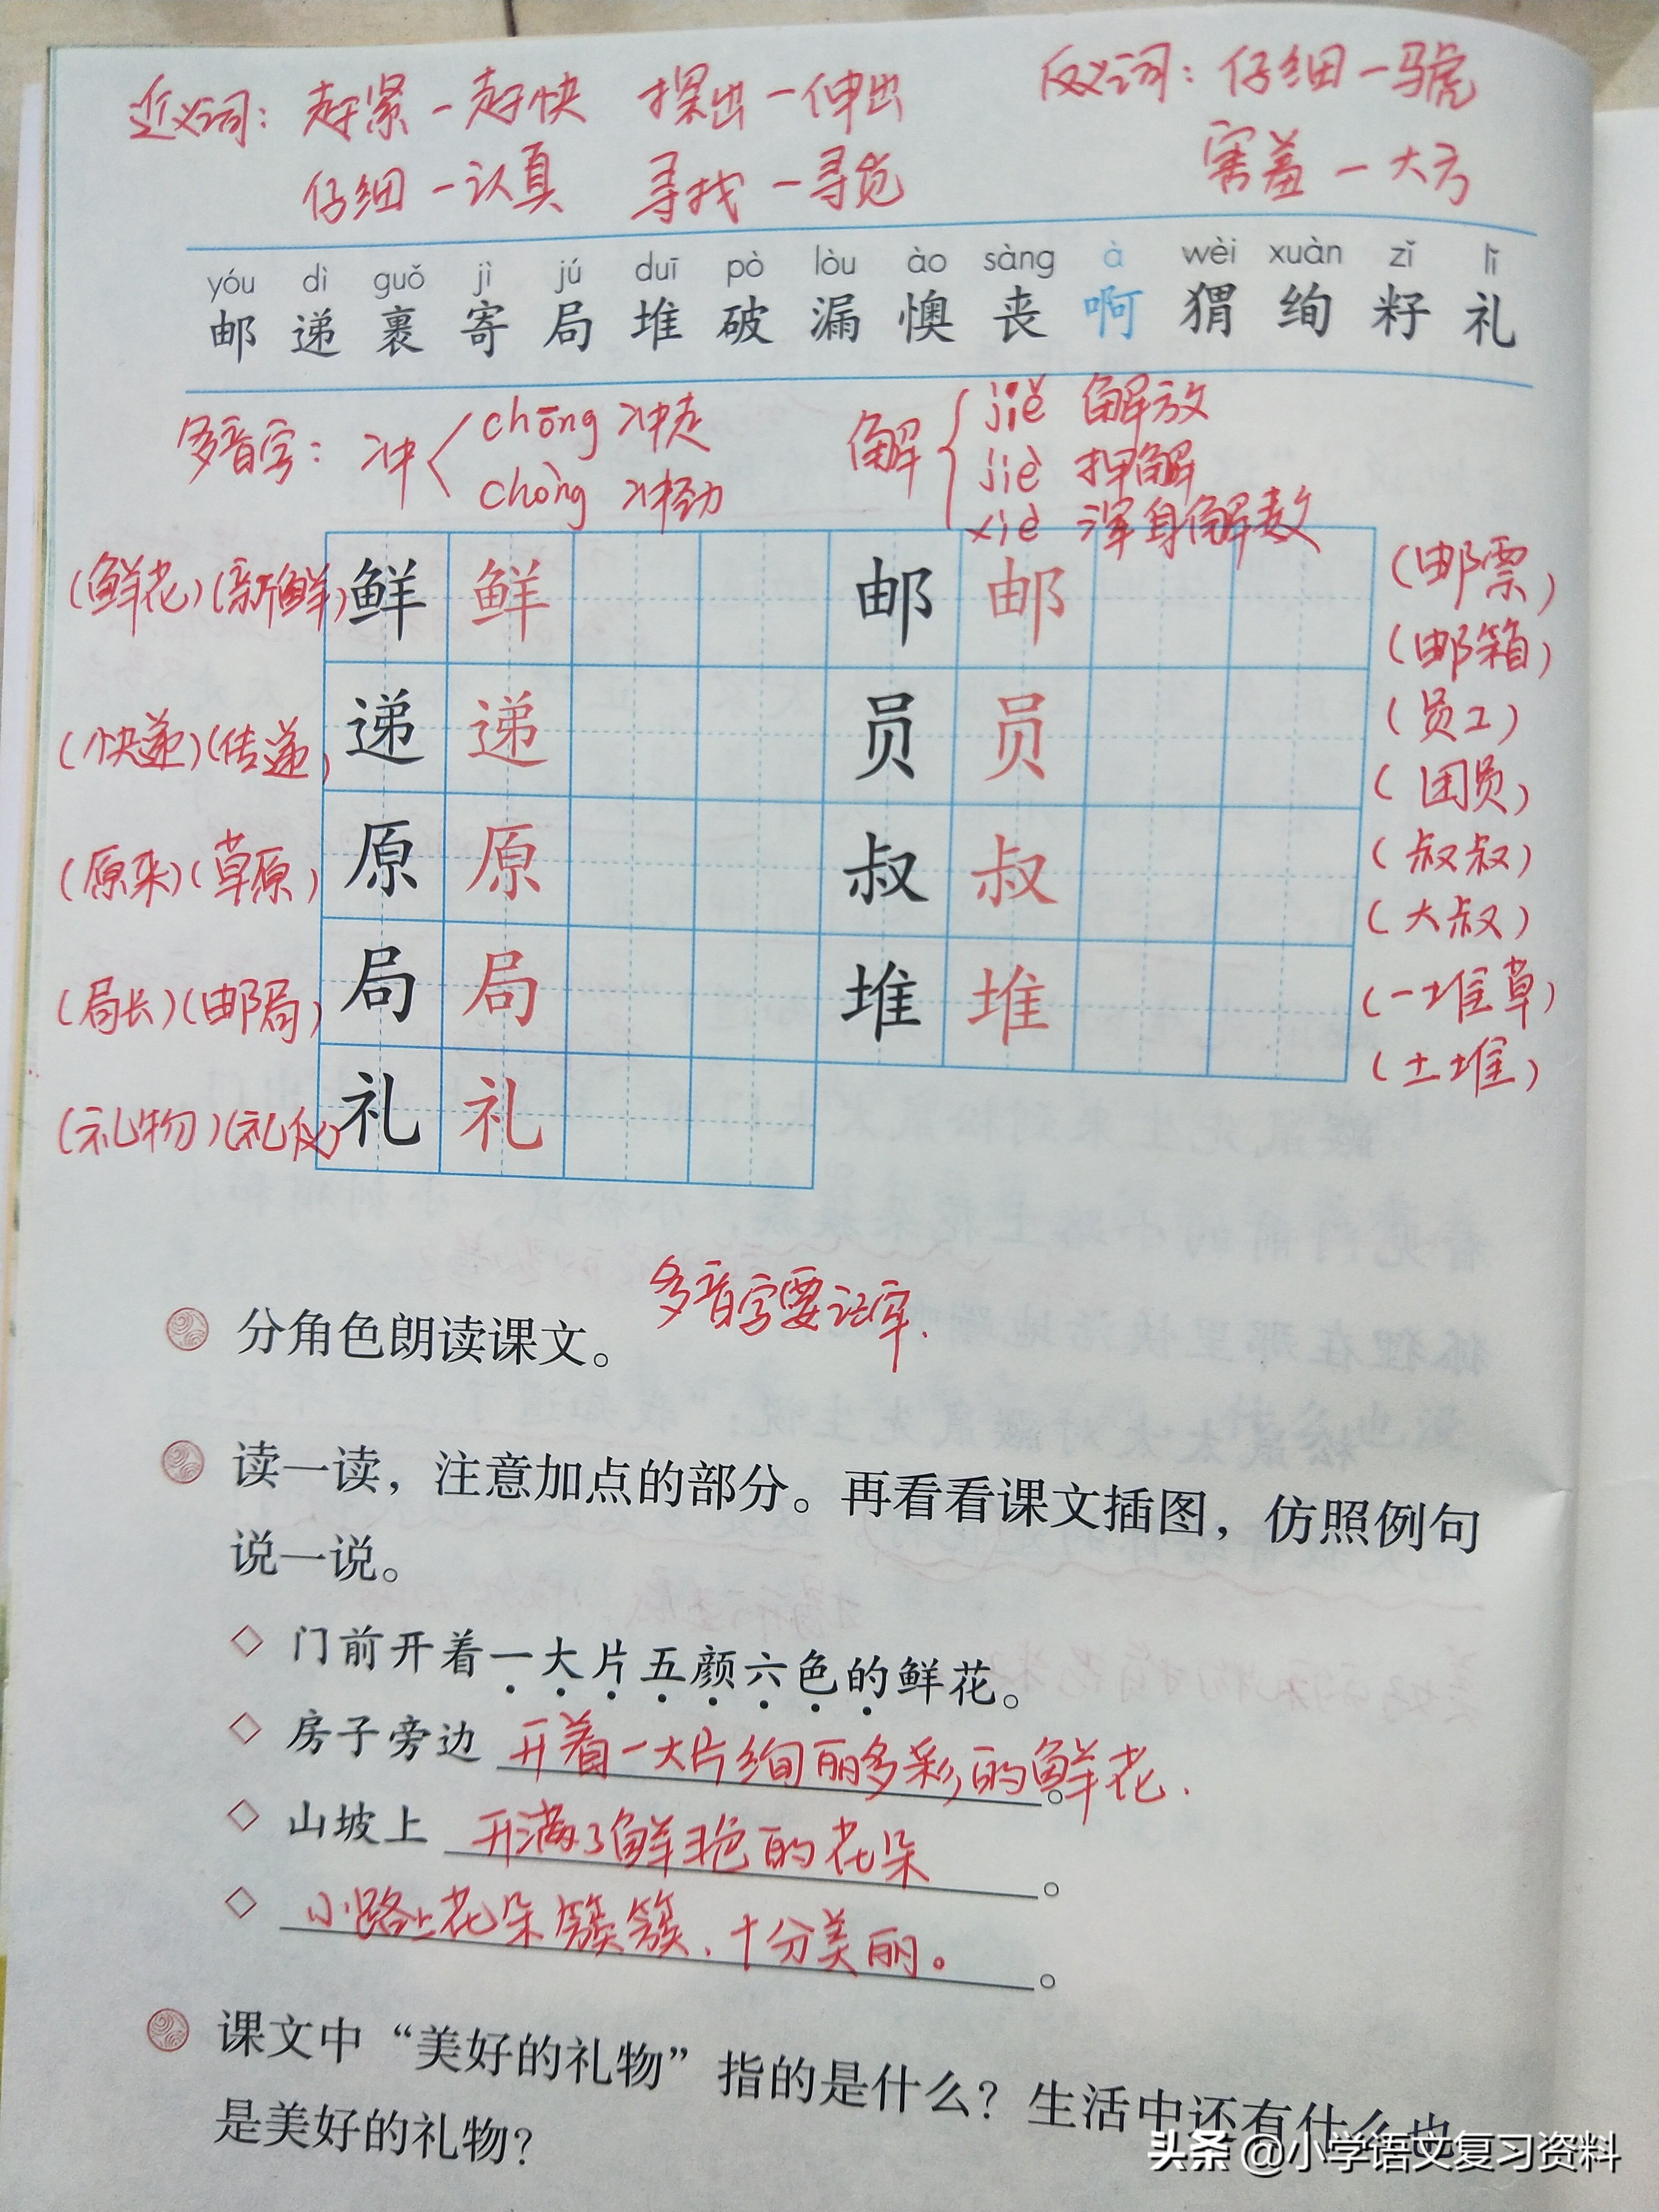 近义词：赶紧－赶快 探出－伸出
反义词：仔细－马虎
仔细－认真 寻找－寻觅
害羞－大方
yóu dì guǒ jì jú duī pò lòu ào sàng à wèi xuàn zǐ lǐ
邮 递 裹 寄 局 堆 破 漏 懊 丧 啊 猬 绚 籽 礼
多音字：冲 chōng 冲走
chòng 冲劲
解 jiě 解放
jiè 押解
xiè 浑身解数
(鲜花)(新鲜) 鲜 鲜 邮 邮 (邮票)
(邮箱)
(快递)(传递) 递 递 员 员 (员工)
(团员)
(原来)(草原) 原 原 叔 叔 (叔叔)
(大叔)
(局长)(邮局) 局 局 堆 堆 (一堆草)
(土堆)
(礼物)(礼仪) 礼 礼
多音字要注牢.
分角色朗读课文。
读一读，注意加点的部分。再看看课文插图，仿照例句
说一说。
◇ 门前开着一大片五颜六色的鲜花。
◇ 房子旁边 开着一大片绚丽多彩的鲜花.。
◇ 山坡上 开满了鲜艳的花朵。
◇ 小路上花朵簇簇、十分美丽。。
课文中“美好的礼物”指的是什么？生活中还有什么也
是美好的礼物？
头条 @小学语文复习资料